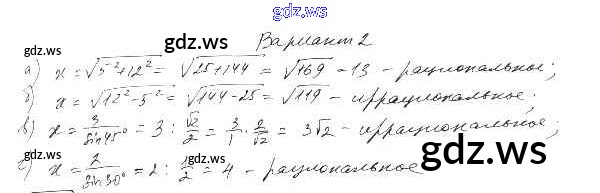 gdz.ws
gdz.ws gdz.ws
Вариант 2
а) x = √5²+12² = √25+144 = √169 - 13 - рациональное;
б) x = √12²-5² = √144-25 = √119 - иррациональное;
в) x = 3/sin45° = 3 : √2/2 = 3/1 · 2/√2 = 3√2 - иррациональное;
г) x = 2/sin30° = 2 : 1/2 = 4 - рациональное
gdz.ws gdz.ws
gdz.ws